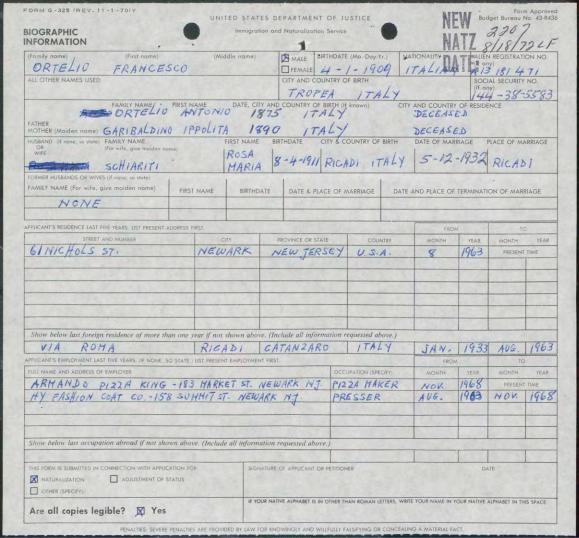 FORM G-325 (REV. 11-1-70)Y
UNITED STATES DEPARTMENT OF JUSTICE
Form Approved
Budget Bureau No. 43-R436
BIOGRAPHIC INFORMATION
Immigration and Naturalization Service
NEW
NATZ
DATE:
2207
8/18/72 LF
(Family name) (First name) (Middle name) MALE FEMALE BIRTHDATE (Mo.-Day-Yr.) NATIONALITY ALIEN REGISTRATION NO. (If any)
ORTELIO FRANCESCO 4-1-1909 ITALIAN A13 181 471
ALL OTHER NAMES USED CITY AND COUNTRY OF BIRTH SOCIAL SECURITY NO. (If any)
TROPEA ITALY 144-38-5583
FAMILY NAME FIRST NAME DATE, CITY AND COUNTRY OF BIRTH (If known) CITY AND COUNTRY OF RESIDENCE
FATHER ORTELIO ANTONIO 1875 ITALY DECEASED
MOTHER (Maiden name) GARIBALDINO IPPOLITA 1890 ITALY DECEASED
HUSBAND OR WIFE (If none, so state) FAMILY NAME (For wife, give maiden name) FIRST NAME BIRTHDATE CITY & COUNTRY OF BIRTH DATE OF MARRIAGE PLACE OF MARRIAGE
SCHIARITI ROSA MARIA 8-4-1911 RICADI ITALY 5-12-1932 RICADI
FORMER HUSBANDS OR WIVES (If none, so state)
FAMILY NAME (For wife, give maiden name) FIRST NAME BIRTHDATE DATE & PLACE OF MARRIAGE DATE AND PLACE OF TERMINATION OF MARRIAGE
NONE
APPLICANT'S RESIDENCE LAST FIVE YEARS. LIST PRESENT ADDRESS FIRST. FROM TO
STREET AND NUMBER CITY PROVINCE OR STATE COUNTRY MONTH YEAR MONTH YEAR
61 NICHOLS ST. NEWARK NEW JERSEY U.S.A. 8 1963 PRESENT TIME
Show below last foreign residence of more than one year if not shown above. (Include all information requested above.)
VIA ROMA RICADI CATANZARO ITALY JAN. 1933 AUG. 1963
APPLICANT'S EMPLOYMENT LAST FIVE YEARS. IF NONE, SO STATE. LIST PRESENT EMPLOYMENT FIRST. FROM TO
FULL NAME AND ADDRESS OF EMPLOYER OCCUPATION (SPECIFY) MONTH YEAR MONTH YEAR
ARMANDO PIZZA KING - 183 MARKET ST. NEWARK NJ. PIZZA MAKER NOV. 1968 PRESENT TIME
HY FASHION COAT CO. - 158 SUMMIT ST. NEWARK NJ PRESSER AUG. 1963 NOV. 1968
Show below last occupation abroad if not shown above. (Include all information requested above.)
THIS FORM IS SUBMITTED IN CONNECTION WITH APPLICATION FOR: SIGNATURE OF APPLICANT OR PETITIONER DATE
NATURALIZATION ADJUSTMENT OF STATUS
OTHER (SPECIFY):
IF YOUR NATIVE ALPHABET IS IN OTHER THAN ROMAN LETTERS, WRITE YOUR NAME IN YOUR NATIVE ALPHABET IN THIS SPACE
Are all copies legible? Yes
PENALTIES: SEVERE PENALTIES ARE PROVIDED BY LAW FOR KNOWINGLY AND WILLFULLY FALSIFYING OR CONCEALING A MATERIAL FACT.